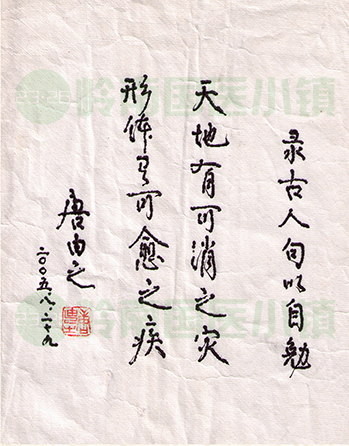 录古人句以自勉
天地有可消之灾
形体有可愈之疾
唐由之
二〇〇五.八.二十九
岭南国医小镇
岭南国医小镇